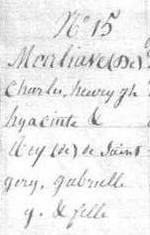 N° 15
Morliave (De)
Charles, henry gh
hyacinte &
Rey (de) de Saint
gery, gabrielle
g. & fille